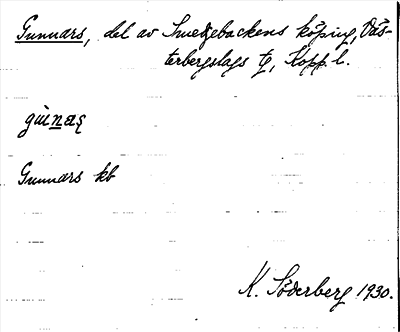 Gunnars, del av Smedjebackens köping, Väs-
terbergslags tg, Kopp. l.
Gunnars kb
K. Söderberg 1930.